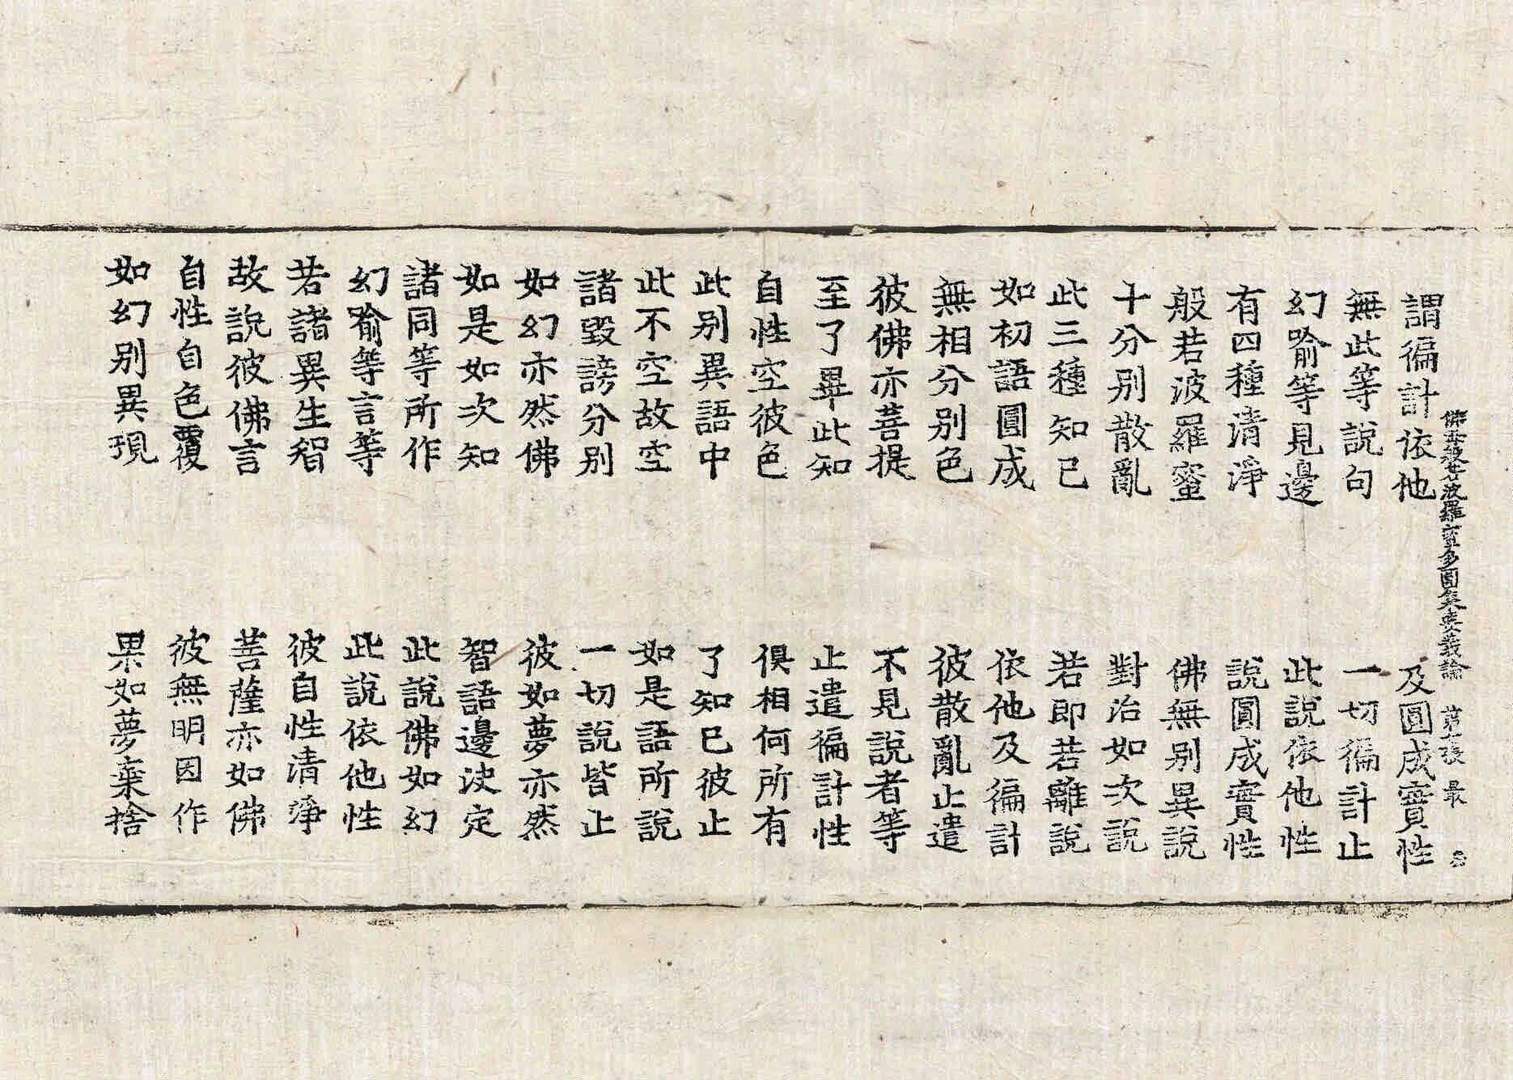 佛母般若波羅蜜多圓集要義論 第 張 最
謂徧計依他 及圓成實性
無此等說句 一切徧計止
幻喻等見邊 此說依他性
有四種清淨 說圓成實性
般若波羅蜜 佛無别異說
十分别散亂 對治如次說
此三種知已 若即若離說
如初語圓成 依他及徧計
無相分别色 彼散亂止遣
彼佛亦菩提 不見說者等
至了畢此知 止遣徧計性
自性空彼色 俱相何所有
此别異語中 了知已彼止
此不空故空 如是語所說
諸毀謗分别 一切說皆止
如幻亦然佛 彼如夢亦然
如是如次知 智語邊決定
諸同等所作 此說佛如幻
幻喻等言等 此說依他性
若諸異生智 彼自性清淨
故說彼佛言 菩薩亦如佛
自性自色覆 彼無明因作
如幻别異現 果如夢棄捨